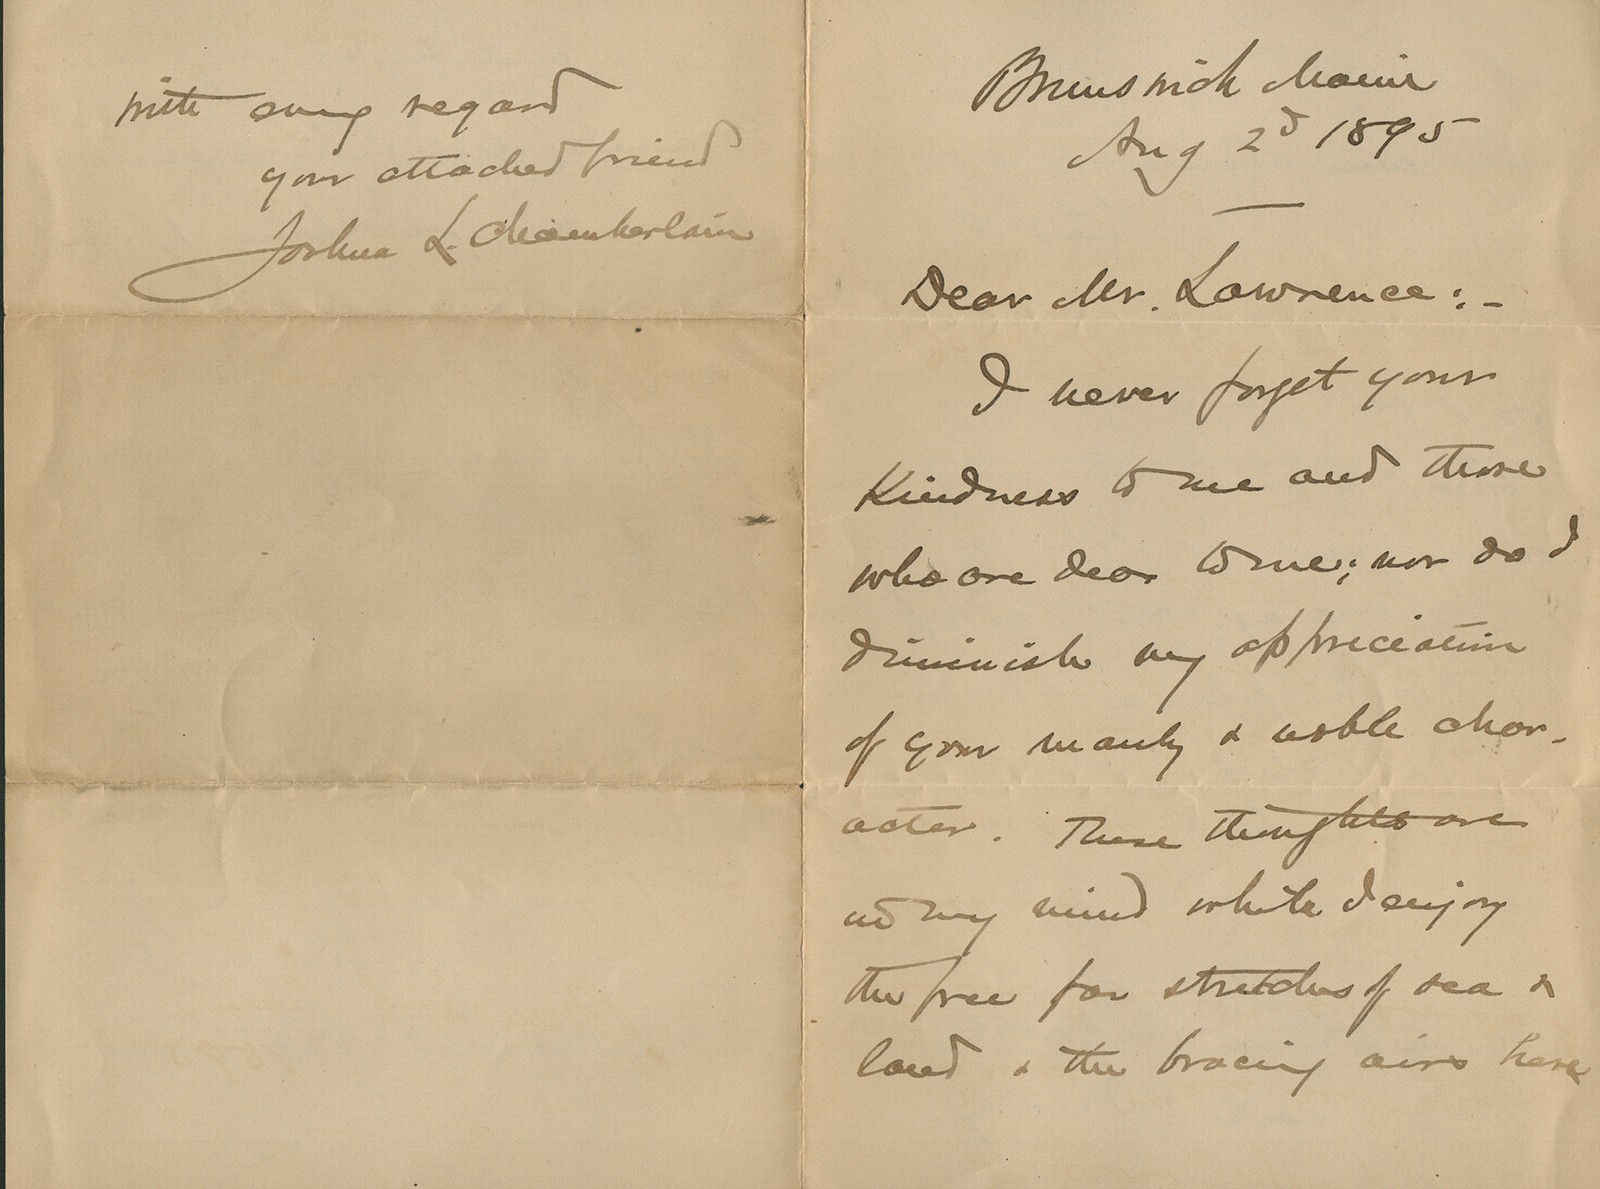 Brunswick Maine
Aug 2d 1895
Dear Mr. Lawrence:-
I never forget your
kindness to me and those
who are dear to me; nor do I
diminish my appreciation
of your manly & noble char-
acter. These thoughts are
in my mind while I enjoy
the free far stretches of sea &
land & the bracing airs here
with every regard
your attached friend
Joshua L. Chamberlain